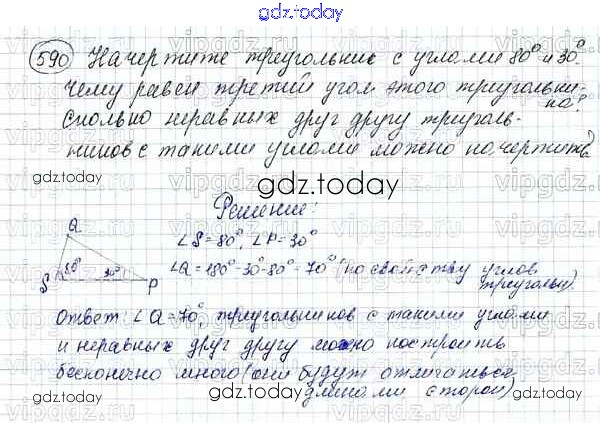 gdz.today
590 Начертите треугольник с углами 80° и 30°.
Чему равен третий угол этого треугольни-
ка?
Сколько неравных друг другу треуголь-
ников с такими углами можно начертить?
gdz.today
gdz.today
Решение:
Q
∠S=80°, ∠P=30°
∠Q=180°-30°-80°=70° (по свойству углов
треугольн).
S 80° 30° P
Ответ: ∠Q=70°, треугольников с такими углами
и неравных друг другу можно построить
бесконечно много (они будут отличаться
длинами сторон)
gdz.today
gdz.today
vipgdz.today